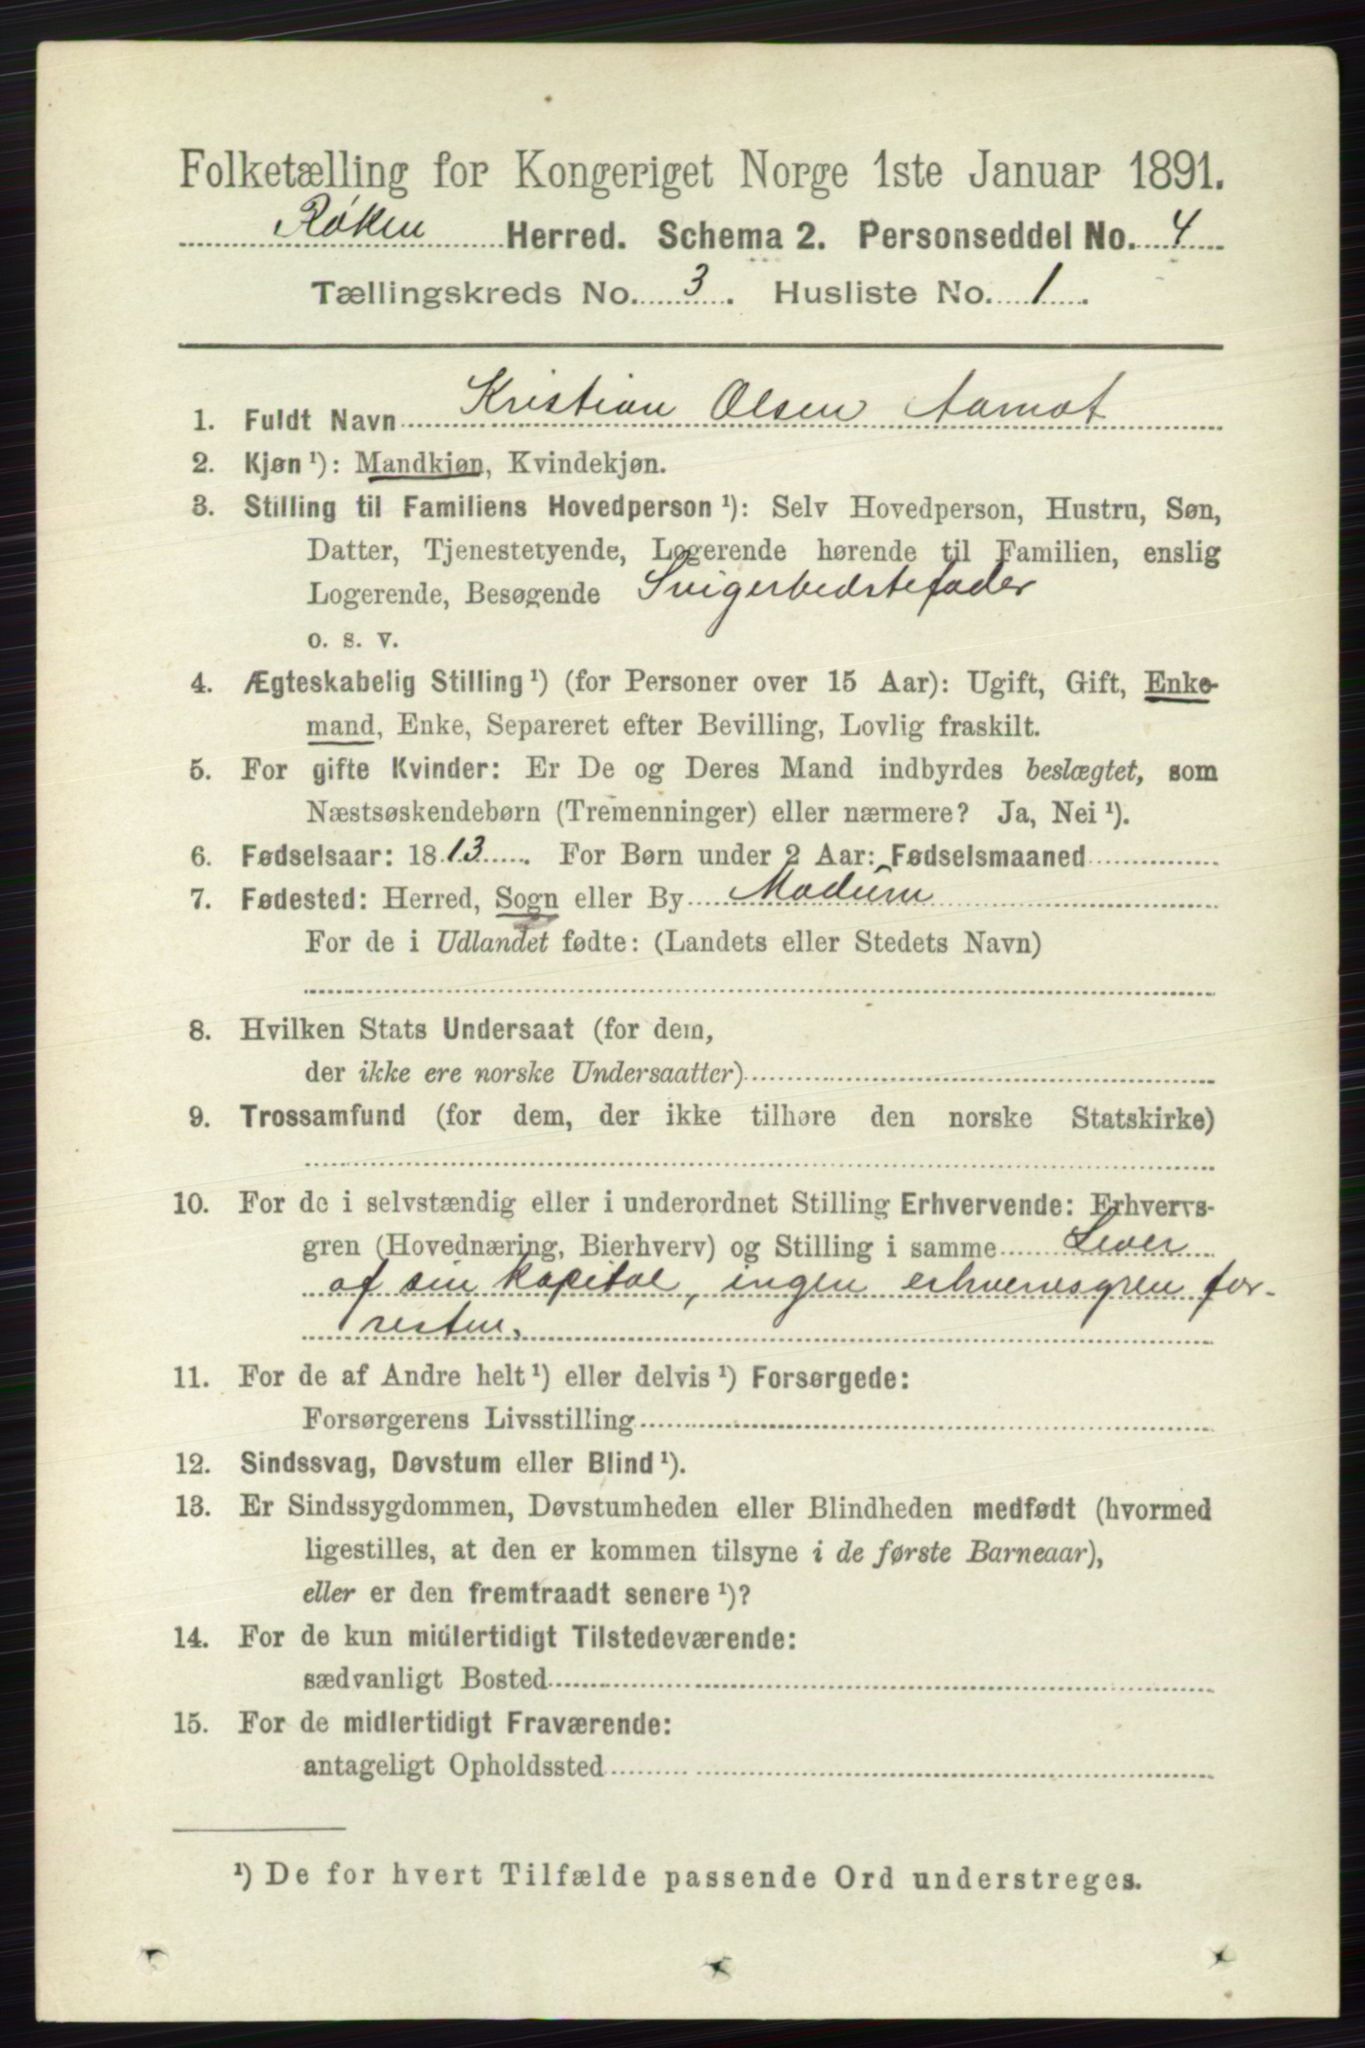 Folketælling for Kongeriget Norge 1ste Januar 1891.
Røken Herred. Schema 2. Personseddel No. 4
Tællingskreds No. 3. Husliste No. 1.
1. Fuldt Navn Kristian Olsen Aamot
2. Kjøn ¹): Mandkjøn, Kvindekjøn.
3. Stilling til Familiens Hovedperson ¹): Selv Hovedperson, Hustru, Søn,
Datter, Tjenestetyende, Logerende hørende til Familien, enslig
Logerende, Besøgende Svigerbedstefader
o. s. v.
4. Ægteskabelig Stilling ¹) (for Personer over 15 Aar): Ugift, Gift, Enke-
mand, Enke, Separeret efter Bevilling, Lovlig fraskilt.
5. For gifte Kvinder: Er De og Deres Mand indbyrdes beslægtet, som
Næstsøskendebørn (Tremenninger) eller nærmere? Ja, Nei ¹).
6. Fødselsaar: 1813. For Børn under 2 Aar: Fødselsmaaned
7. Fødested: Herred, Sogn eller By Modum
For de i Udlandet fødte: (Landets eller Stedets Navn)
8. Hvilken Stats Undersaat (for dem,
der ikke ere norske Undersaatter)
9. Trossamfund (for dem, der ikke tilhøre den norske Statskirke)
10. For de i selvstændig eller i underordnet Stilling Erhvervende: Erhvervs-
gren (Hovednæring, Bierhverv) og Stilling i samme Lever
af sin kapital, ingen erhvervsgren for-
resten.
11. For de af Andre helt ¹) eller delvis ¹) Forsørgede:
Forsørgerens Livsstilling
12. Sindssvag, Døvstum eller Blind ¹).
13. Er Sindssygdommen, Døvstumheden eller Blindheden medfødt (hvormed
ligestilles, at den er kommen tilsyne i de første Barneaar),
eller er den fremtraadt senere ¹)?
14. For de kun midlertidigt Tilstedeværende:
sædvanligt Bosted
15. For de midlertidigt Fraværende:
antageligt Opholdssted
¹) De for hvert Tilfælde passende Ord understreges.